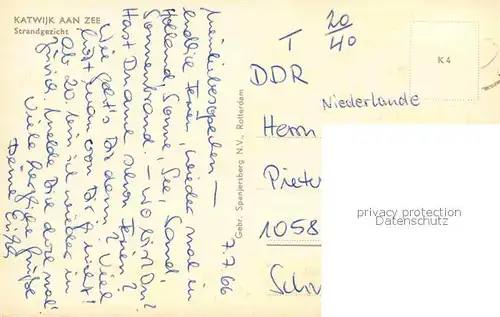 KATWIJK AAN ZEE
Strandgezicht
7.7.66
endlich Ferien, wieder mal in
Holland, Sonne, See, Sand,
Sonnenbrand. – wo bist Du?
Hast Du auch schon Ferien?
Wie geht's Dir denn? Viel
hört man von Dir nicht!
Ab 20. bin ich wieder in
Melde Dich doch mal
Viele herzliche Grüße
Deine
Gebr. Spanjersberg N.V., Rotterdam
T 20/40
DDR
Niederlande
Herrn
Pieter
1058
Schw
K 4
privacy protection
Datenschutz